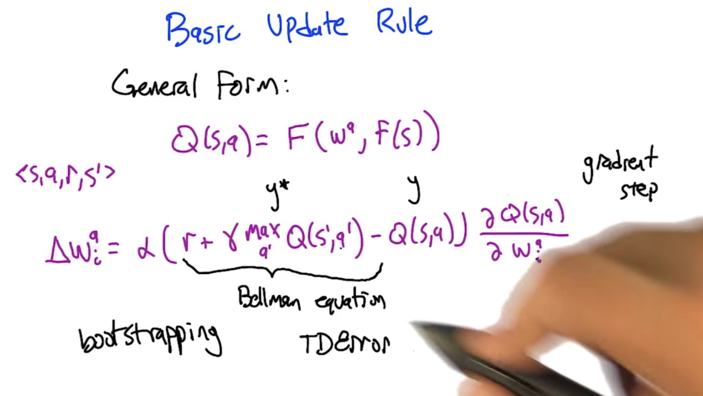 Basic Update Rule
General Form:
Q(s,a) = F(w^a, f(s))
<s,a,r,s'>
gradient step
y* y
Δw_i^a = α (r + γ max_a' Q(s',a') - Q(s,a)) ∂Q(s,a) / ∂w_i^a
Bellman equation
bootstrapping TDError